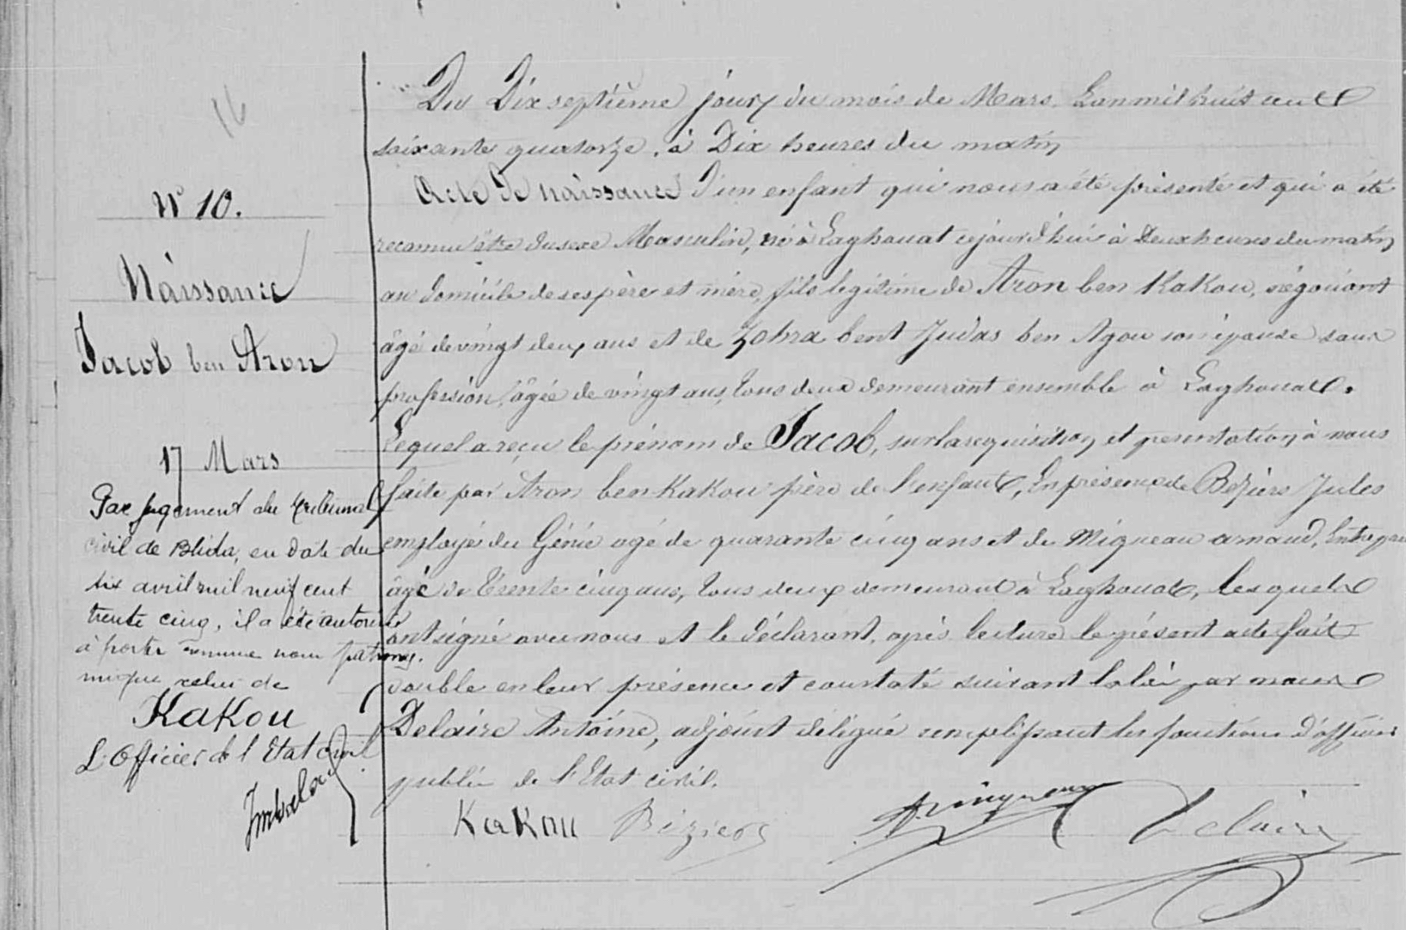 16
N° 10.
Naissance
Jacob ben Aron
17 Mars
Par jugement du tribunal
civil de Blida, en date du
six avril mil neuf cent
trente cinq, il a été autorisé
à porter comme nom patrony-
mique celui de
Kakou
L'Officier de l'Etat civil
Du Dix septième jour du mois de Mars. L'an mil huit cent
soixante quatorze. à Dix heures du matin
Acte de naissance d'un enfant qui nous a été présenté et qui a été
reconnu être du sexe Masculin, né à Laghouat cejourd'hui à Deux heures du matin
au domicile de ses père et mère, fils légitime de Aron ben Kakou, négociant
âgé de vingt deux ans et de Zohra bent Judas ben Agou son épouse sans
profession, âgée de vingt ans, tous deux demeurant ensemble à Laghouat.
Lequel a reçu le prénom de Jacob, sur la requisition et présentation à nous
faite par Aron ben Kakou père de l'enfant, En présence de Béziers Jules
employé du Génie agé de quarante cinq ans et de Miqueau arnaud, Entrepr
âgé de trente cinq ans, tous deux demeurant à Laghouat, lesquels
ont signé avec nous et le déclarant, après lecture le présent acte fait
double en leur présence et constaté suivant la loi par nous
Delaire Antoine, adjoint délégué remplissant les fonctions d'officier
public de l'Etat civil.
Kakou Béziers A. Miqueau Delaire